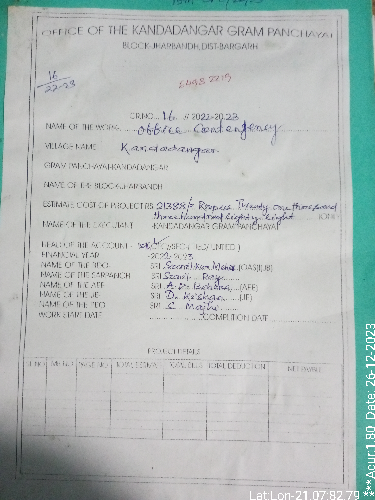 OFFICE OF THE KANDADANGAR GRAM PANCHAYAT
BLOCK-JHARBANDH, DIST-BARGARH
16
22-23
CR.NO... 16 // 2022-2023
NAME OF THE WORK office Contengency
VILLAGE NAME Kandadangar
GRAM PANCHAYAT-KANDADANGAR
NAME OF THE BLOCK-JHARBANDH
ESTIMATE COST OF PROJECT RS 21388/- Rupees Twenty one thousand
three hundred eighty eight (ONLY)
NAME OF THE EXECUTANT -KANDADANGAR GRAM PANCHAYAT
HEAD OF THE ACCOUNT
FINANCIAL YEAR -2022-2023
NAME OF THE BDO SRI (OAS)(JB)
NAME OF THE SARPANCH SRI
NAME OF THE AEE SRI (AEE)
NAME OF THE JE SRI D. Kishan (JE)
NAME OF THE PEO SRI S Majhi
WORK START DATE COMPLETION DATE
PROJECT DETAILS
TOTAL DEDUCTION NET PAYABLE
Lat Lon-21.07:82.79
***Acur:1.80 Date: 26-12-2023